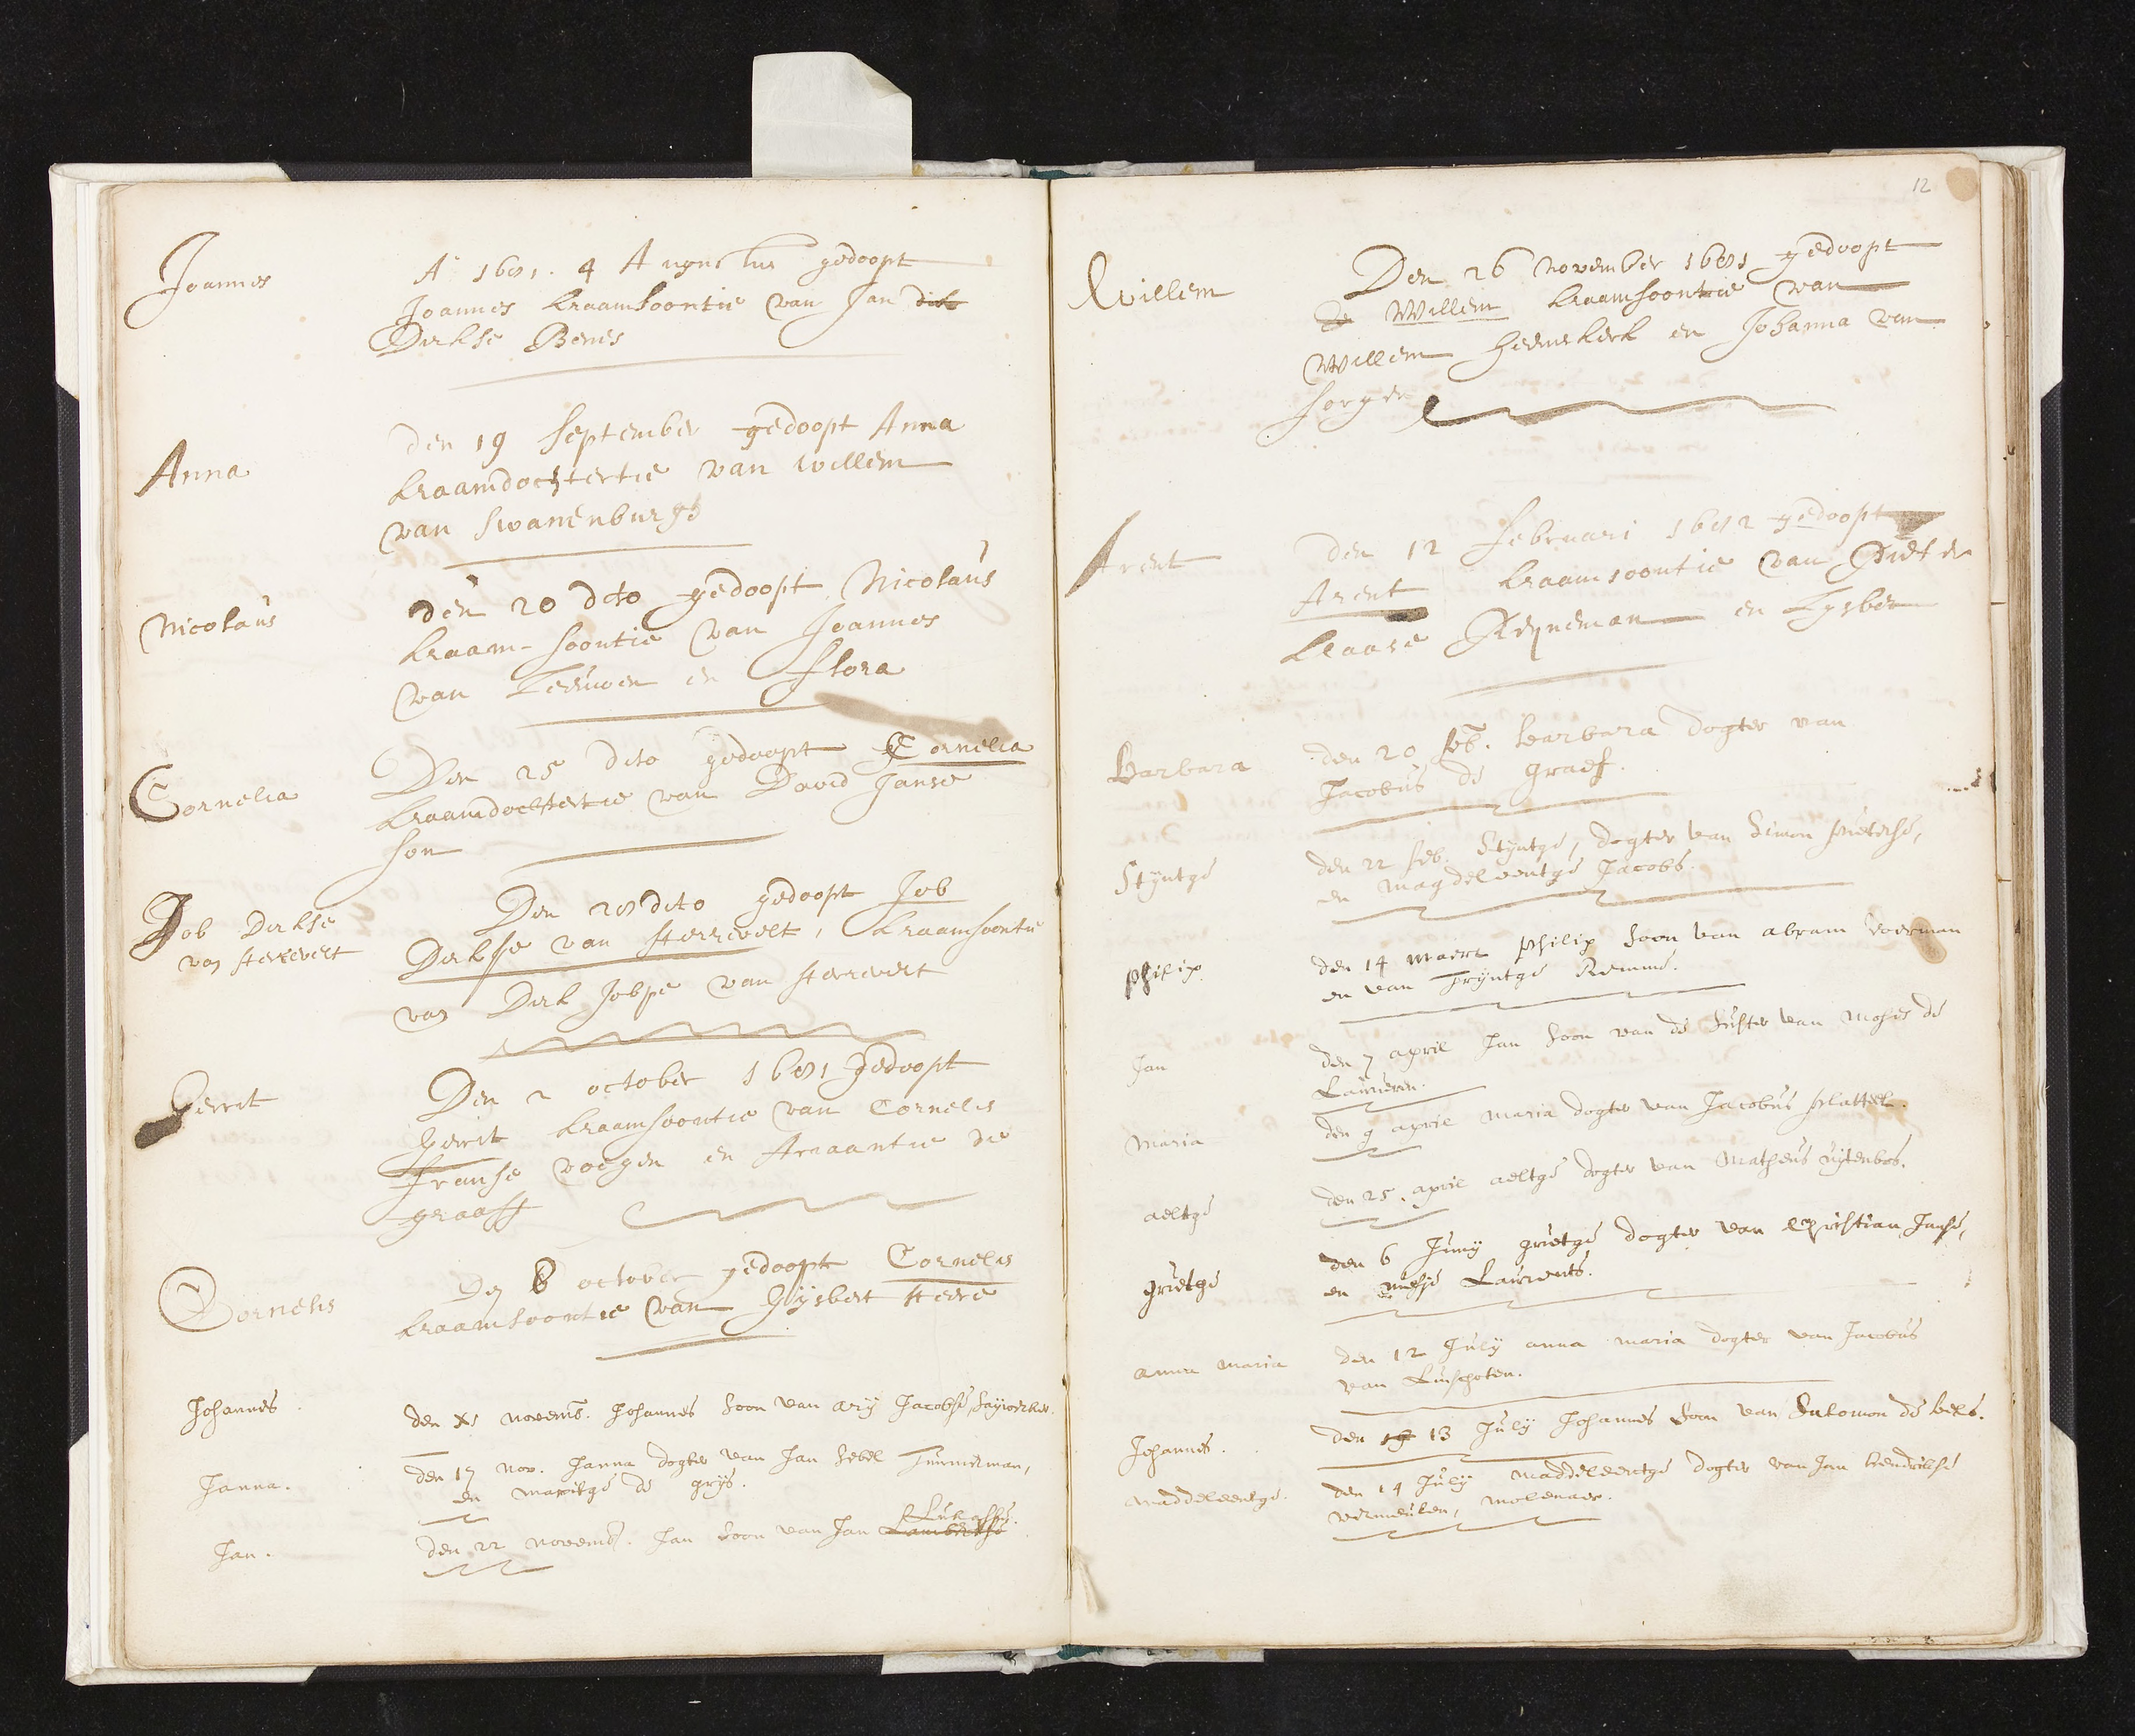 Joannes
A° 1681. 4 Augustus gedoopt
Joannes kraamsoontie van Jan
Dirkse Benes
Anna
den 19 September gedoopt Anna
kraamdochtertie van willem
van Swanenburgh
Nicolaus
den 20 dito gedoopt Nicolaus
kraam-soontie van Joannes
van Leeuwen en Flora
Cornelia
Den 25 dito gedoopt Cornelia
kraamdochtertie van David Janse
son
Job Dirkse
van sterrevelt
Den 28 dito gedoopt Job
Dirkse van sterrevelt, kraamsoontie
van Dirk Jobse van sterrevelt
Gerrit
Den 2 october 1681 gedoopt
Gerrit kraamsoontie van Cornelis
Franse voegen en Ariaantie de
graaff
Cornelis
Den 8 october gedoopt Cornelis
kraamsoontie van Gijsbert
Johannes.
den novemb. Johannes Soon van arij Jacobse,
Janna.
den 17 nov. Janna dogter van Jan Timmerman,
en maritge de grijs.
Jan.
Lukasse.
den 22 novemb. Jan Soon van Jan Lambertse
12
Willem
Den 26 November 1681 gedoopt
Willem kraamsoontie van
Willem Heemskerk en Johanna van
sorgen
Arent
den 12 Februari 1682 gedoopt
Arent kraamsoontie van Pieter
klaase Reyneman en Lysbet
Barbara
den 20 feb. barbara dogter van
Jacobus de graef.
Stijntge
den 22 feb. Stijntge, dogter van Simon pieterse,
en magdeleentge Jacobs.
philip.
den 14 maert philip Soon van abram voerman
en van Trijntge Remme.
Jan
den 7 april Jan Soon van de Suster van Moses de
Laurieren.
maria
den 9 april maria dogter van Jacobus plattel.
aeltge
den 25. april aeltge dogter van Matheus uijtenbos.
grietge
den 6 Junij grietge dogter van Christian Janse,
en Laurents.
anna maria
den 12 Julij anna maria dogter van Jacobus
van Linschoten.
Johannes.
den 13 Julij Johannes Soon van Salomon de bels.
maddeleentge.
den 14 Julij maddeleentge dogter van Jan hendrikse
vermeulen, molenaer.